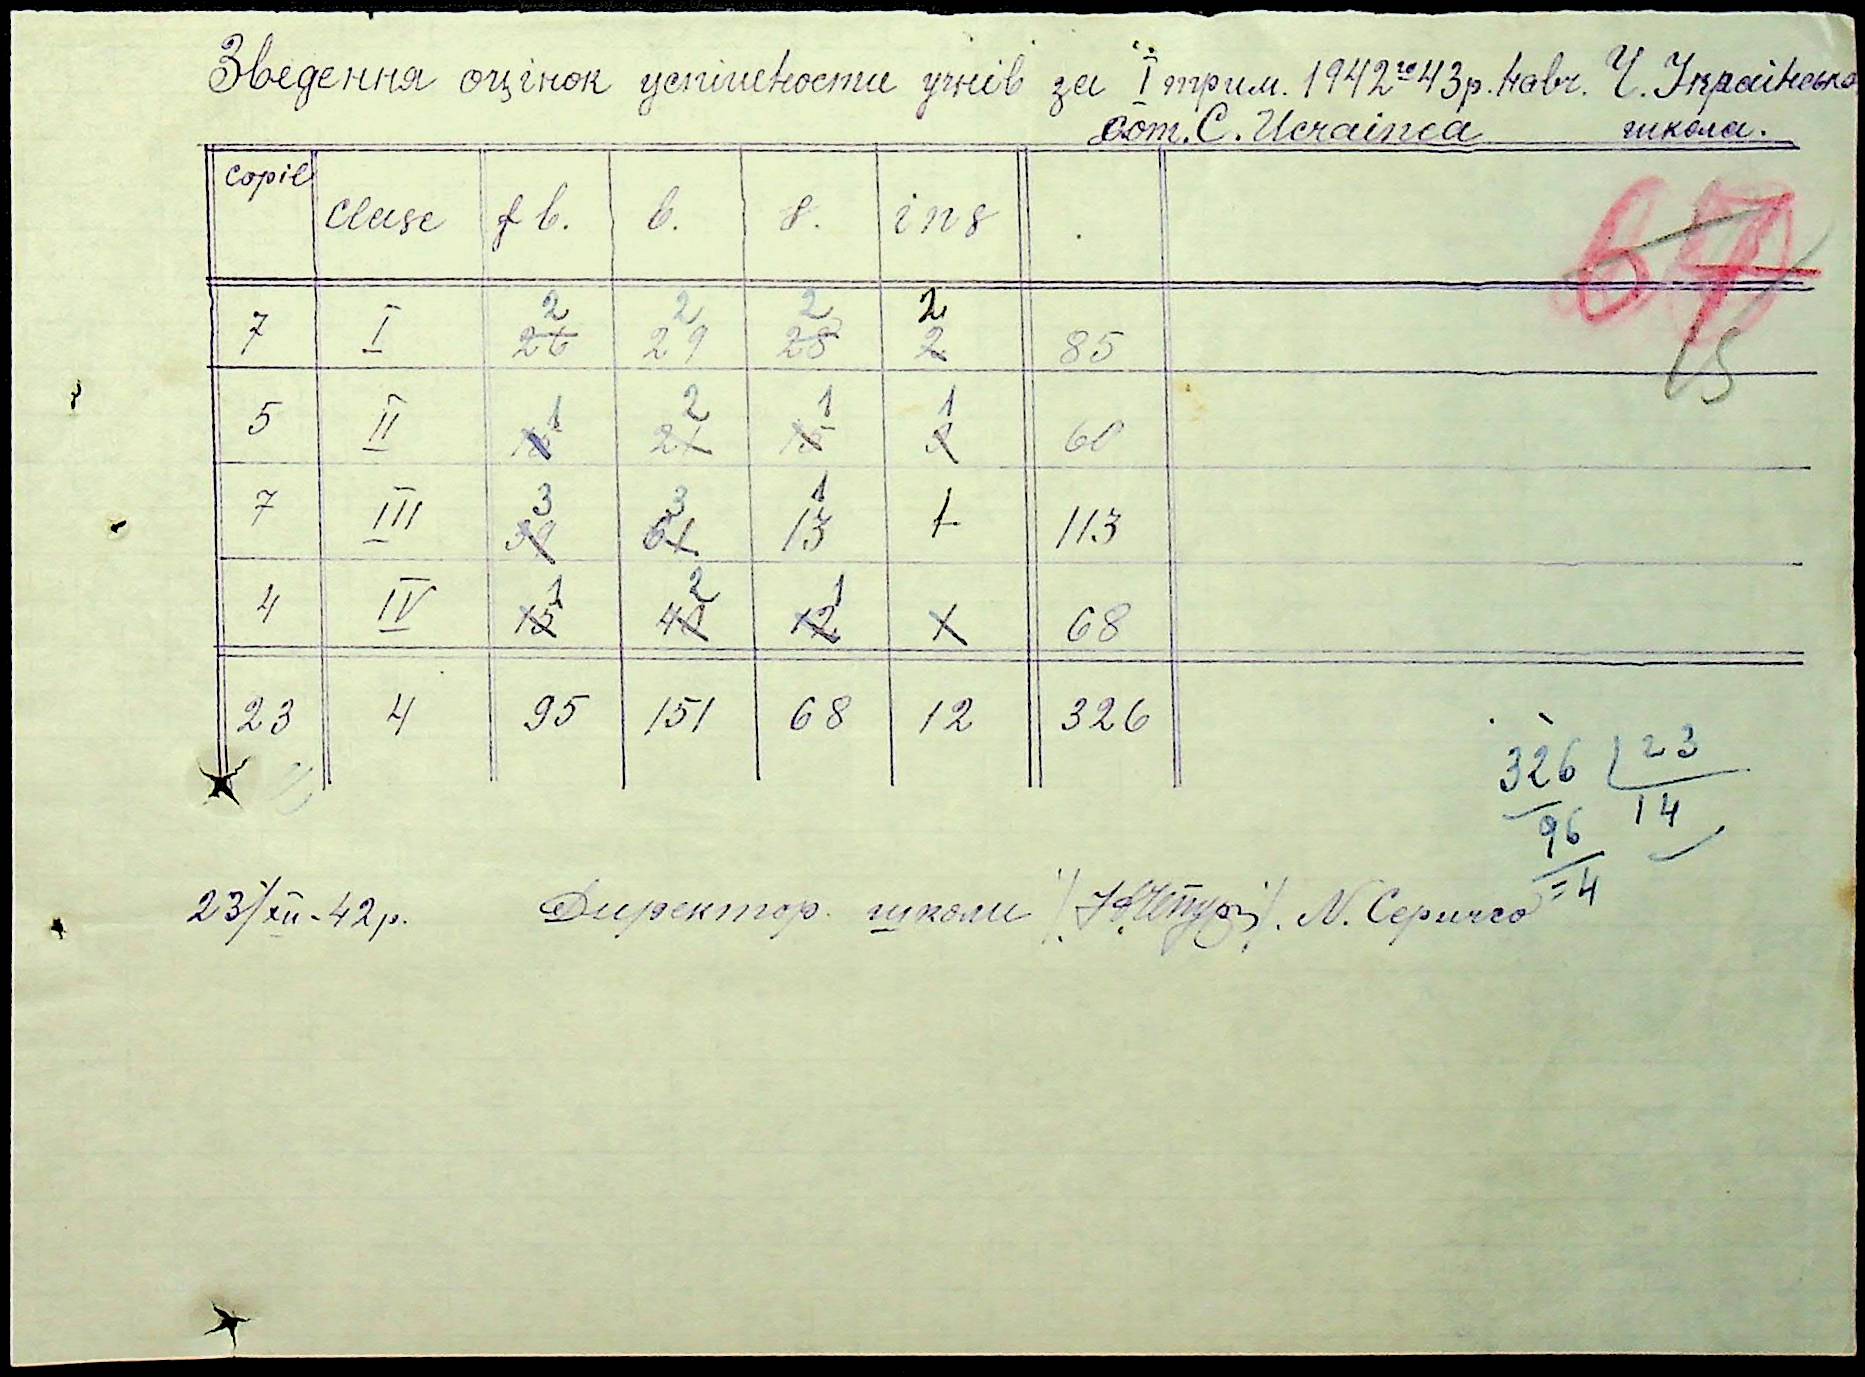 Зведення оцінок успішности учнів за І трим. 1942го43р. навч. Ч. Українська
com. C. Ucrainca школа.
copii clase f b. b. s. ins
2 2 2 2
7 I 26 29 28 2 85
1 2 1 1
5 II 21 60
3 3 1
7 III 61 13 1 113
1 2 1
4 IV 15 40 12 1 68
23 4 95 151 68 12 326
67
15
326 23
96 14
=4
23/XII-42р. Директор школи